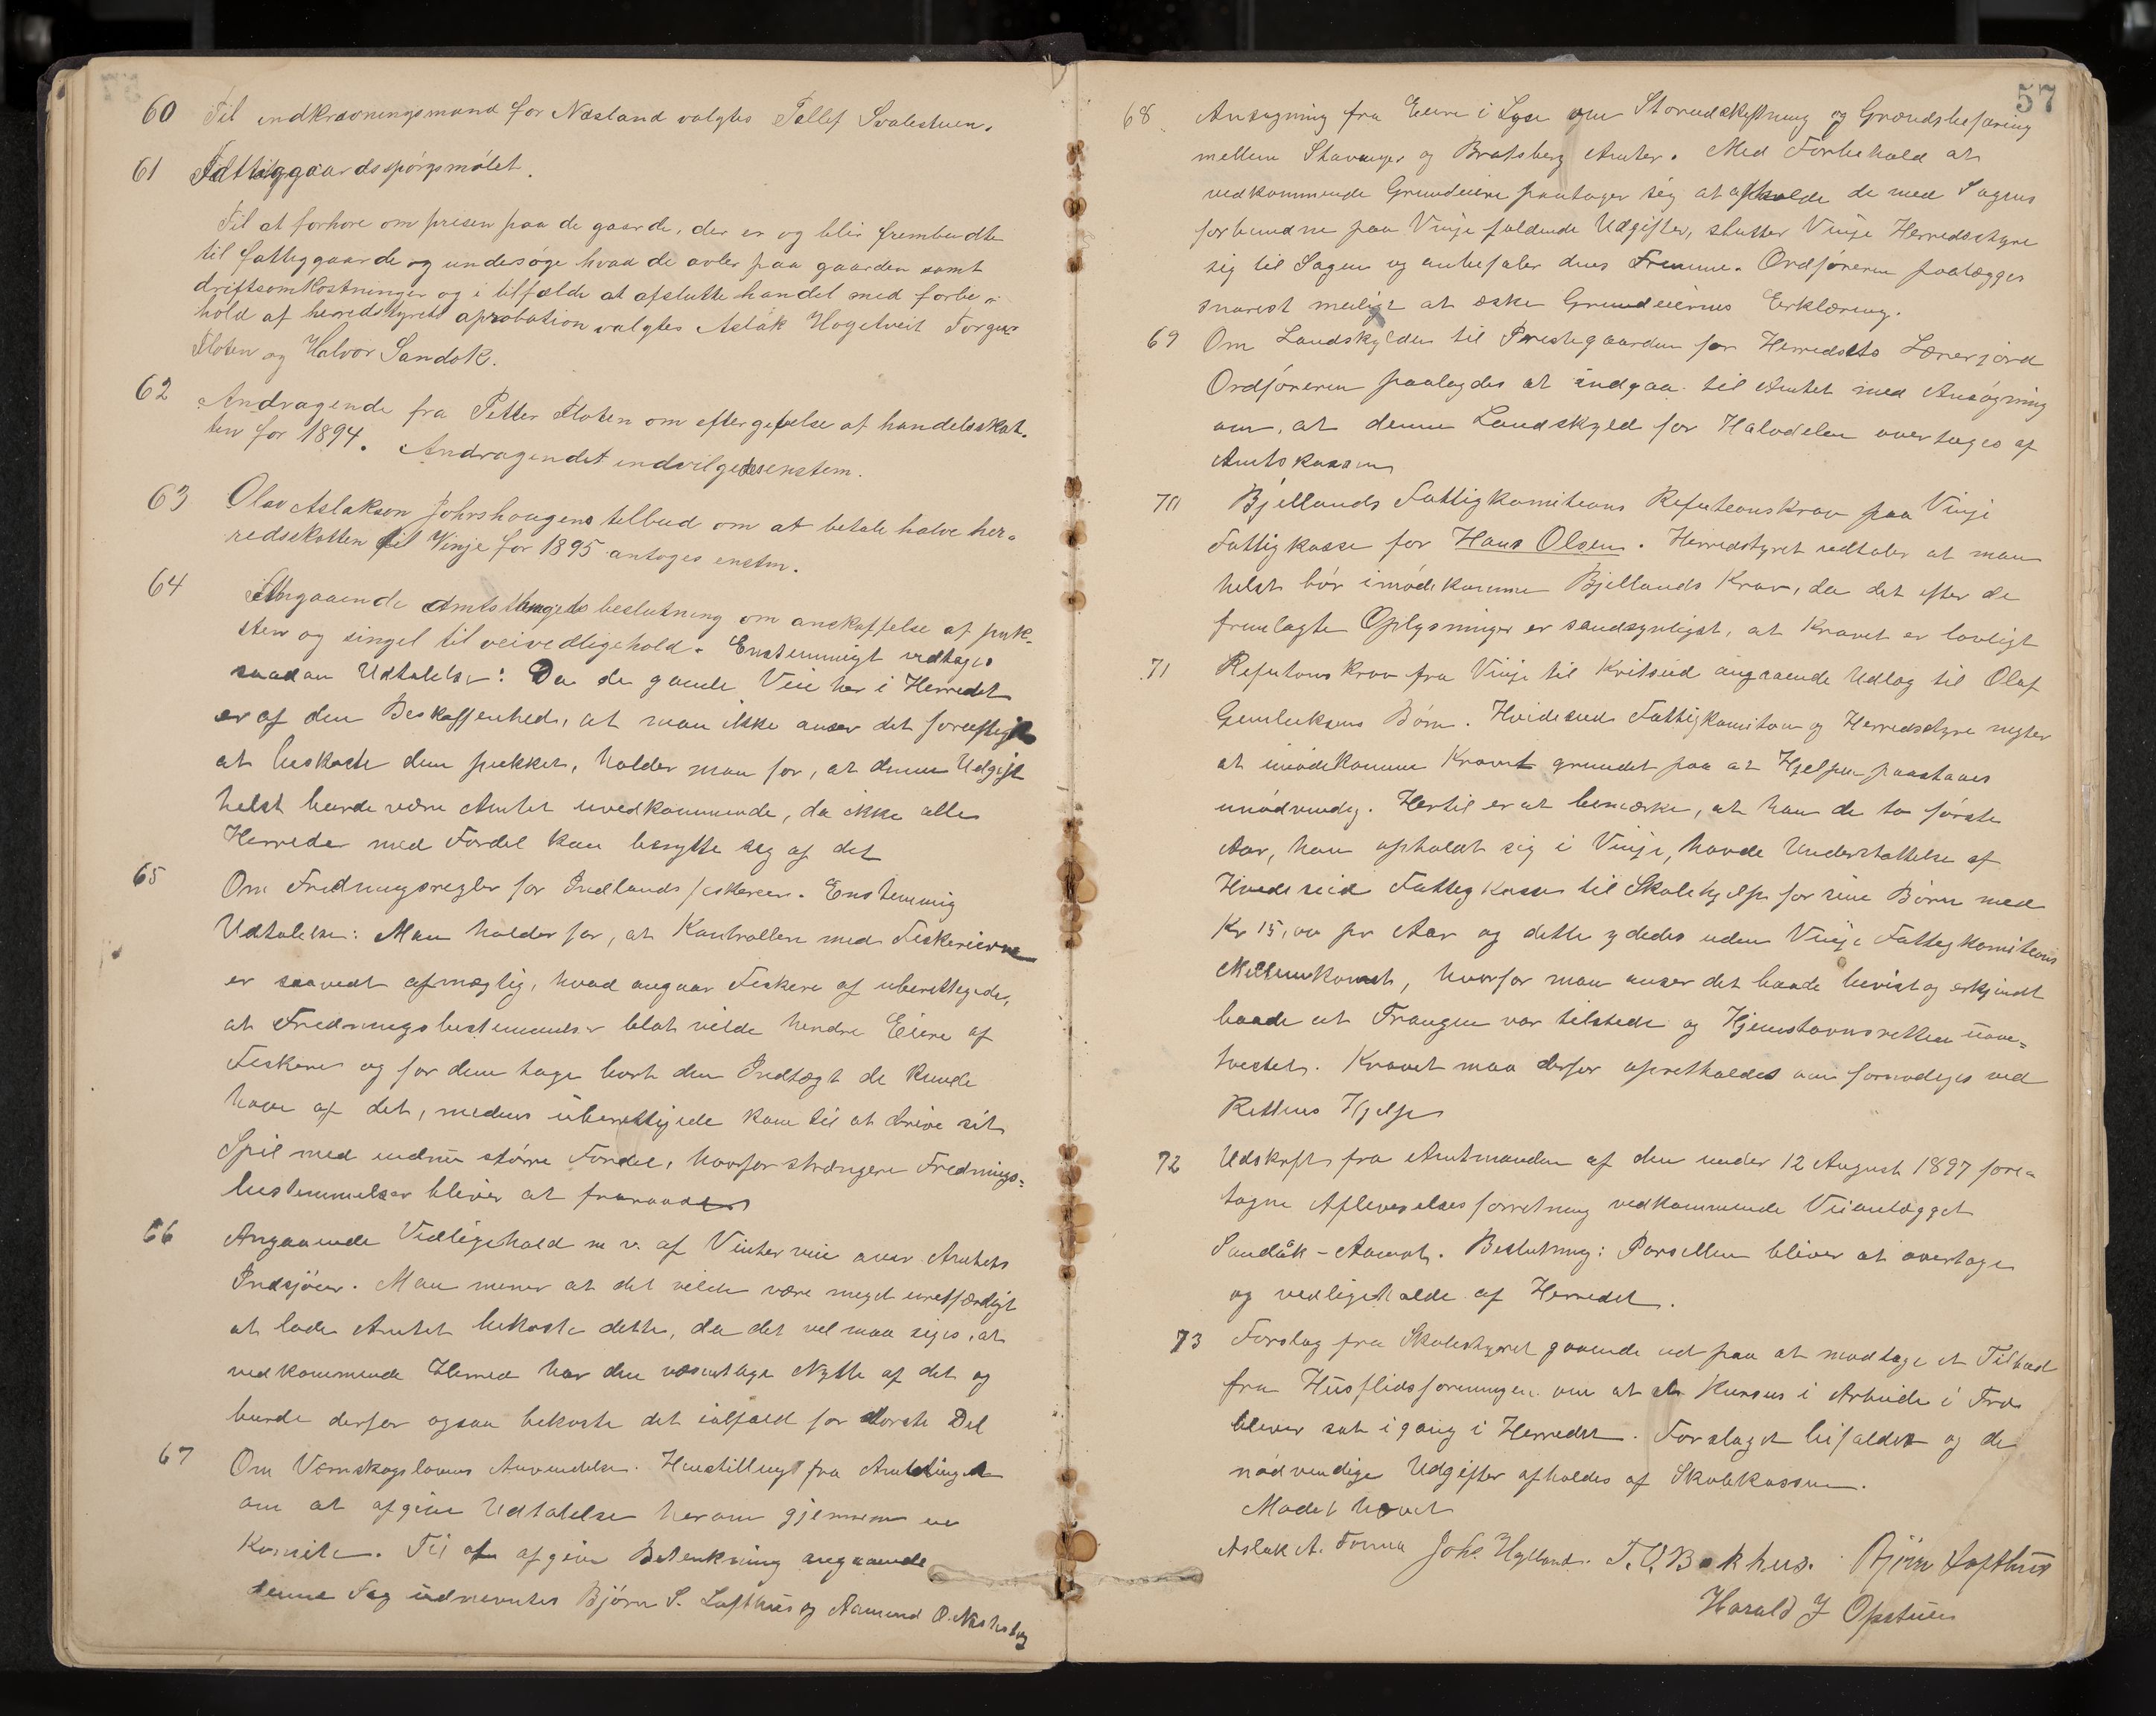 60 Til indkrævningsmand for Næsland valgtes Tallef Svalestuen.
61 Fattiggaardsspørgsmålet.
Til at forhøre om prisen paa de gaarde, der er og blir frembudte
til fattiggaarde og undersøge hvad de avler paa gaarden samt
driftsomkostninger og i tilfælde at afslutte handel med forbe-
hold af herredstyrets aprobation valgtes Aslak Hogetveit Torgus
Floten og Halvor Sandok.
62 Andragende fra Petter Floten om eftergivelse af handelsskat-
ten for 1894. Andragendet indvilgedes enstem.
63 Olav Aslakson Johrshaugens tilbud om at betale halve her-
redsskatten til Vinje for 1895 antoges enstm.
64 Angaaende Amtsthingets beslutning om anskaffelse af puk-
sten og singel til veivedligehold. Enstemmigt vedtages
saadan Udtalelse: Da de gamle Veie her i Herredet
er af den Beskaffenhed, at man ikke anser det fornuftigt
at beskoste dem pukket, holder man for, at denne Udgift
helst burde være Amtet uvedkommende, da ikke alle
Herreder med Fordel kan benytte seg af det
65 Om Fredningsregler for Indlandsfiskerier. Enstemmig
Udtalelse: Man holder for, at Kontrollen med Fiskerierne
er saavidt afmægtig, hvad angaar Fiskere af uberettigede,
at Fredningsbestemmelser blot vilde hindre Eiere af
Fiskeri og for dem tage bort den Indtægt de kunde
have af det, medens uberettigede kom til at drive sit
Spil med endnu større Fordel, hvorfor strængere Frednings-
bestemmelser bliver at fraraades
66 Angaaende Vedligehold m v. af Vinterveie over Amtets
Indsjøer. Man mener at det vilde være meget uretfærdigt
at lade Amtet bekoste dette, da det vel maa siges, at
vedkommende Herred har den væsentlige Nytte af det og
burde derfor ogsaa bekoste det ialfald for største Del
67 Om Vernskogslovens Anvendelse. Henstilling fra Amtstinget
om at afgive Udtalelse herom gjennem en
Komite. Til at afgive Betenkning angaaende
denne Sag udnevntes Bjørn S. Lofthus og Aamund O. Næsheley
57
68 Ansøgning fra Eiere i Lyse om Storudskiftning og Grændsbefaring
mellem Stavanger og Bratsberg Amter. Med Forbehold at
vedkommende Grundeiere paatager sig at afholde de med Sagens
forbundne paa Vinje faldende Udgifter, slutter Vinje Herredsstyre
sig til Sagen og anbefaler dens Fremme. Ordføreren paalægges
snarest muligt at æske Grundeiernes Erklæring.
69 Om Landskylden til Prestegaarden for Herredets Lærerjord
Ordføreren paalagdes at indgaa til Amtet med Ansøgning
om, at denne Landskyld for Halvdelen overtages af
Amtskassen
70 Bjellands Fattigkomiteens Refusionskrav paa Vinje
Fattigkasse for Hans Olsen. Herredstyret udtaler at man
helst bør imødekomme Bjellands Krav, da det efter de
fremlagte Oplysninger er sandsynligst, at Kravet er lovligt
71 Refutonskrav fra Vinje til Kvitseid angaaende Udlæg til Olaf
Gunleksens Børn. Hvideseids Fattigkomiton og Herredsstyre negter
at imødekomme Kravet grundet paa at Hjelpen paastaaes
unødvendig. Hertil er at bemerke, at han de to første
Aar, han opholdt sig i Vinje, havde Understøttelse af
Hvideseid Fattigkasse til Skolehjelp for sine Børn med
Kr 15,00 pr Aar og dette ydedes uden Vinje Fattigkomiteens
Mellemkomst, hvorfor man anser det baade bevist og erkjendt
baade at Trangen var tilstede og Hjemstavnsretten uom-
tvistet. Kravet maa derfor opretholdes om fornødiges ved
Rettens Hjelp
72 Udskrift fra Amtmanden af den under 12 August 1897 fore-
tagne Afleverelsesforretning vedkommende Veianlægget
Sandåk-Aamot. Beslutning: Parsellen bliver at overtage
og vedligeholde af Herredet.
73 Forslag fra Skolestyret gaaende ud paa at modtage et Tilbud
fra Husflidsforeningen om at et Kursus i Arbeide i Træ
bliver sat igang i Herredet. Forslaget bifaldes og de
nødvendige Udgifter afholdes af Skolekassen.
Mødet hævet
Aslak A. Fonna Johs. Hylland. T. O. Bakhus. Bjørn Lofthus
Harald J Opstuen